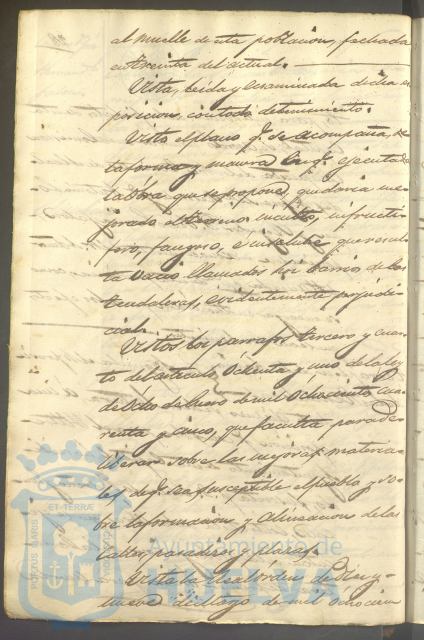 al muelle de esta poblacion, fechada
en treinta del actual.
Vista, leida y examinada dicha es
posicion, con todo detenimiento.
Visto el plano q.e se acompaña, de
la forma y manera en q.e ejecutada
la obra que se propone, quedaria me
jorado el terreno inculto, infructi
fero, fangoso, é insalubre que resul
ta vacio llamados hoi barrio de las
tendaleras, evidentemente perjudi
cial.
Vistos los parrafos tercero y cuar
to del articulo Ochenta y uno de la ley
de Ocho de Enero de mil Ochocientos Cua
renta y cinco, que faculta para de
liberar sobre las mejoras materia
les de q.e sea susceptible el pueblo y so
bre la formacion y alineacion de las
calles, pasadizos y plazas.
Vista la Real órden de Diez y
nueve de Mayo de mil Ochocien
PORTUS MARIS
ET TERRÆ
Ayuntamiento de
HUELVA